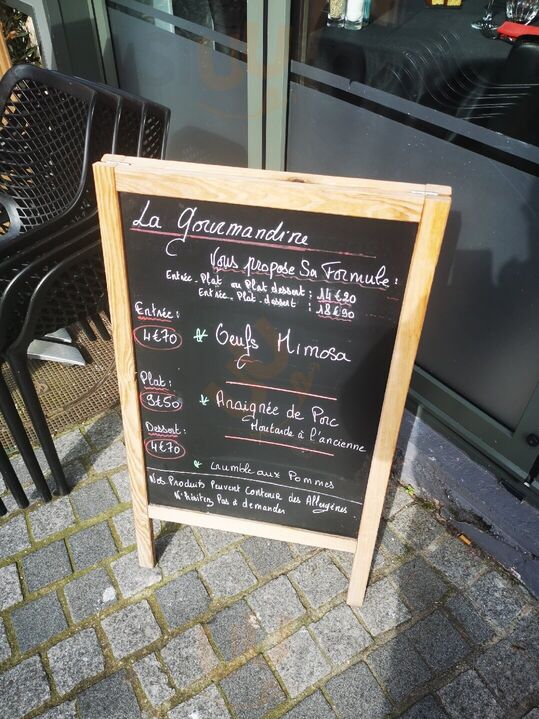 La Gourmandine
Vous propose Sa Formule :
Entrée. Plat ou Plat dessert : 14€20
Entrée. Plat. dessert : 18€90
Entrée :
4€70 Oeufs Mimosa
Plat :
9€50 Araignée de Porc
Moutarde à l'ancienne
Dessert :
4€70
Crumble aux Pommes
Nos Produits Peuvent Contenir des Allergènes
N'hésitez Pas à demander